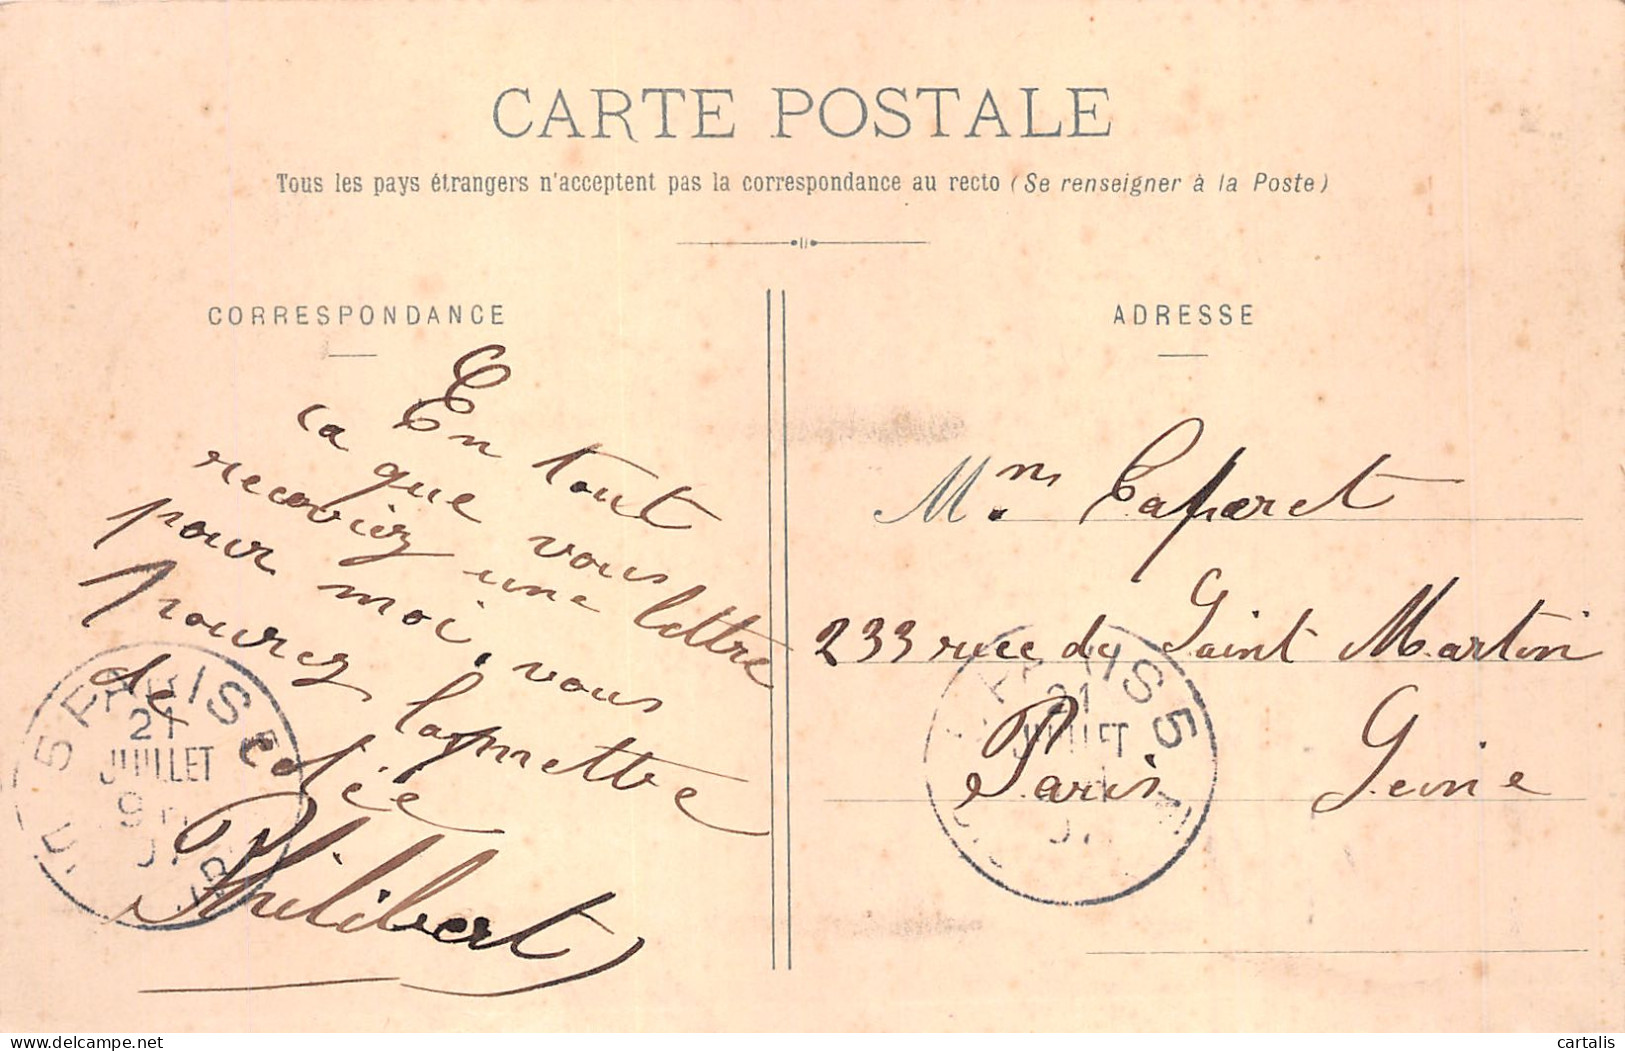 CARTE POSTALE
Tous les pays étrangers n'acceptent pas la correspondance au recto (Se renseigner à la Poste)
CORRESPONDANCE
En tout
ca que vous
receviez une lettre
pour moi, vous
pourez lapmettre
de côtée
Philibert
ADRESSE
Mme Caparet
233 rue du Saint Martin
Paris Seine
PARIS 5
21
JUILLET
9
PARIS 5
21
JUILLET
delcampe.net
cartalis